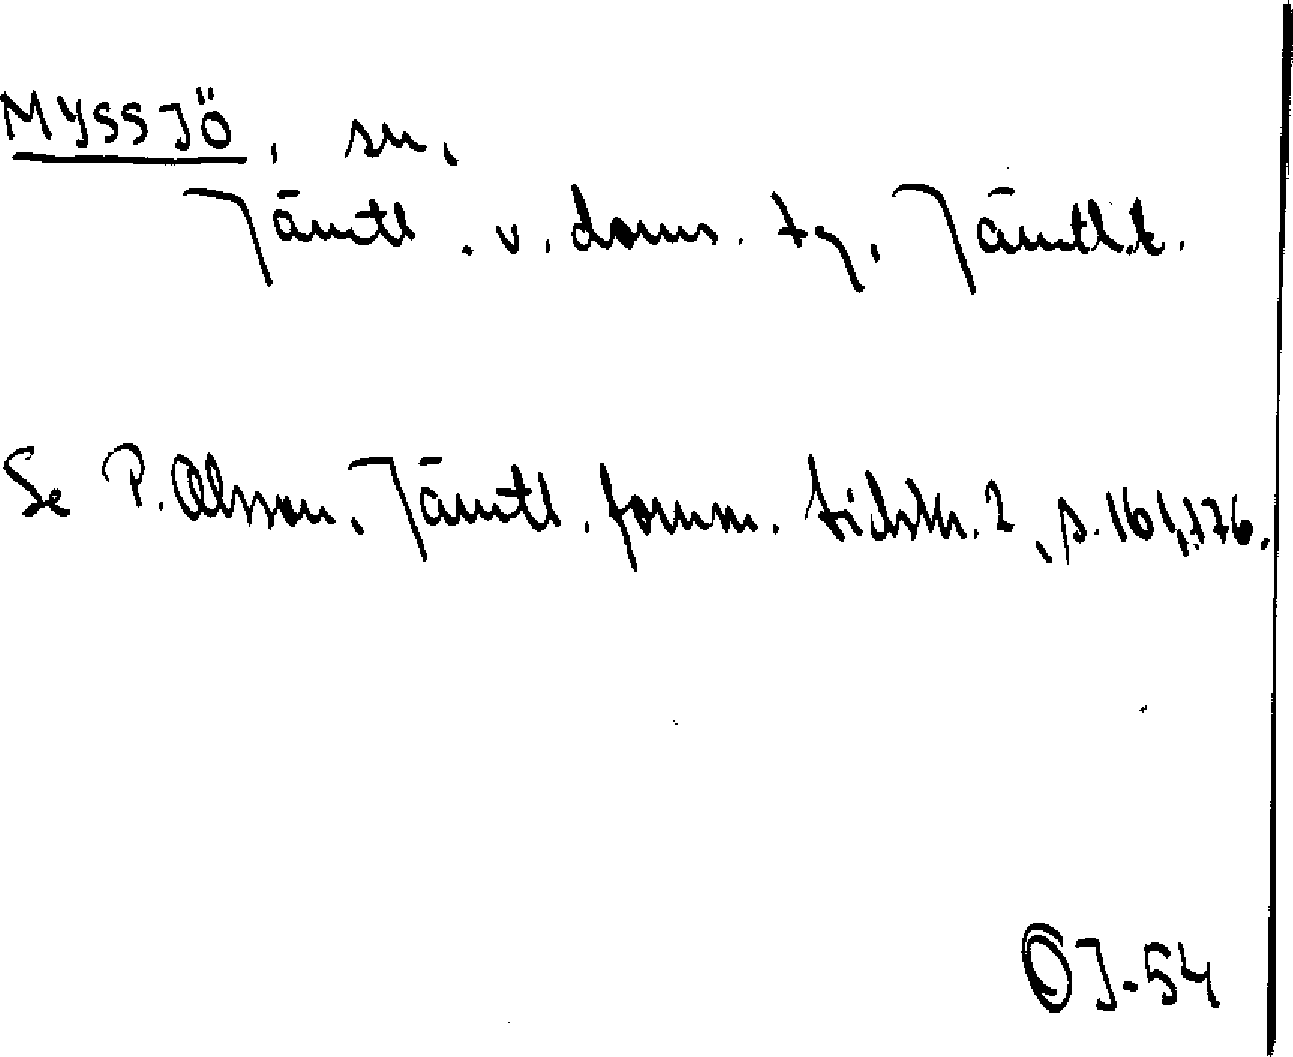 MYSSJÖ, sn,
Jämtl. v. doms. tg, Jämtl.l.
Se P. Olsson, Jämtl. fornm. tidskr. 2, s. 161, 176.
OJ-54